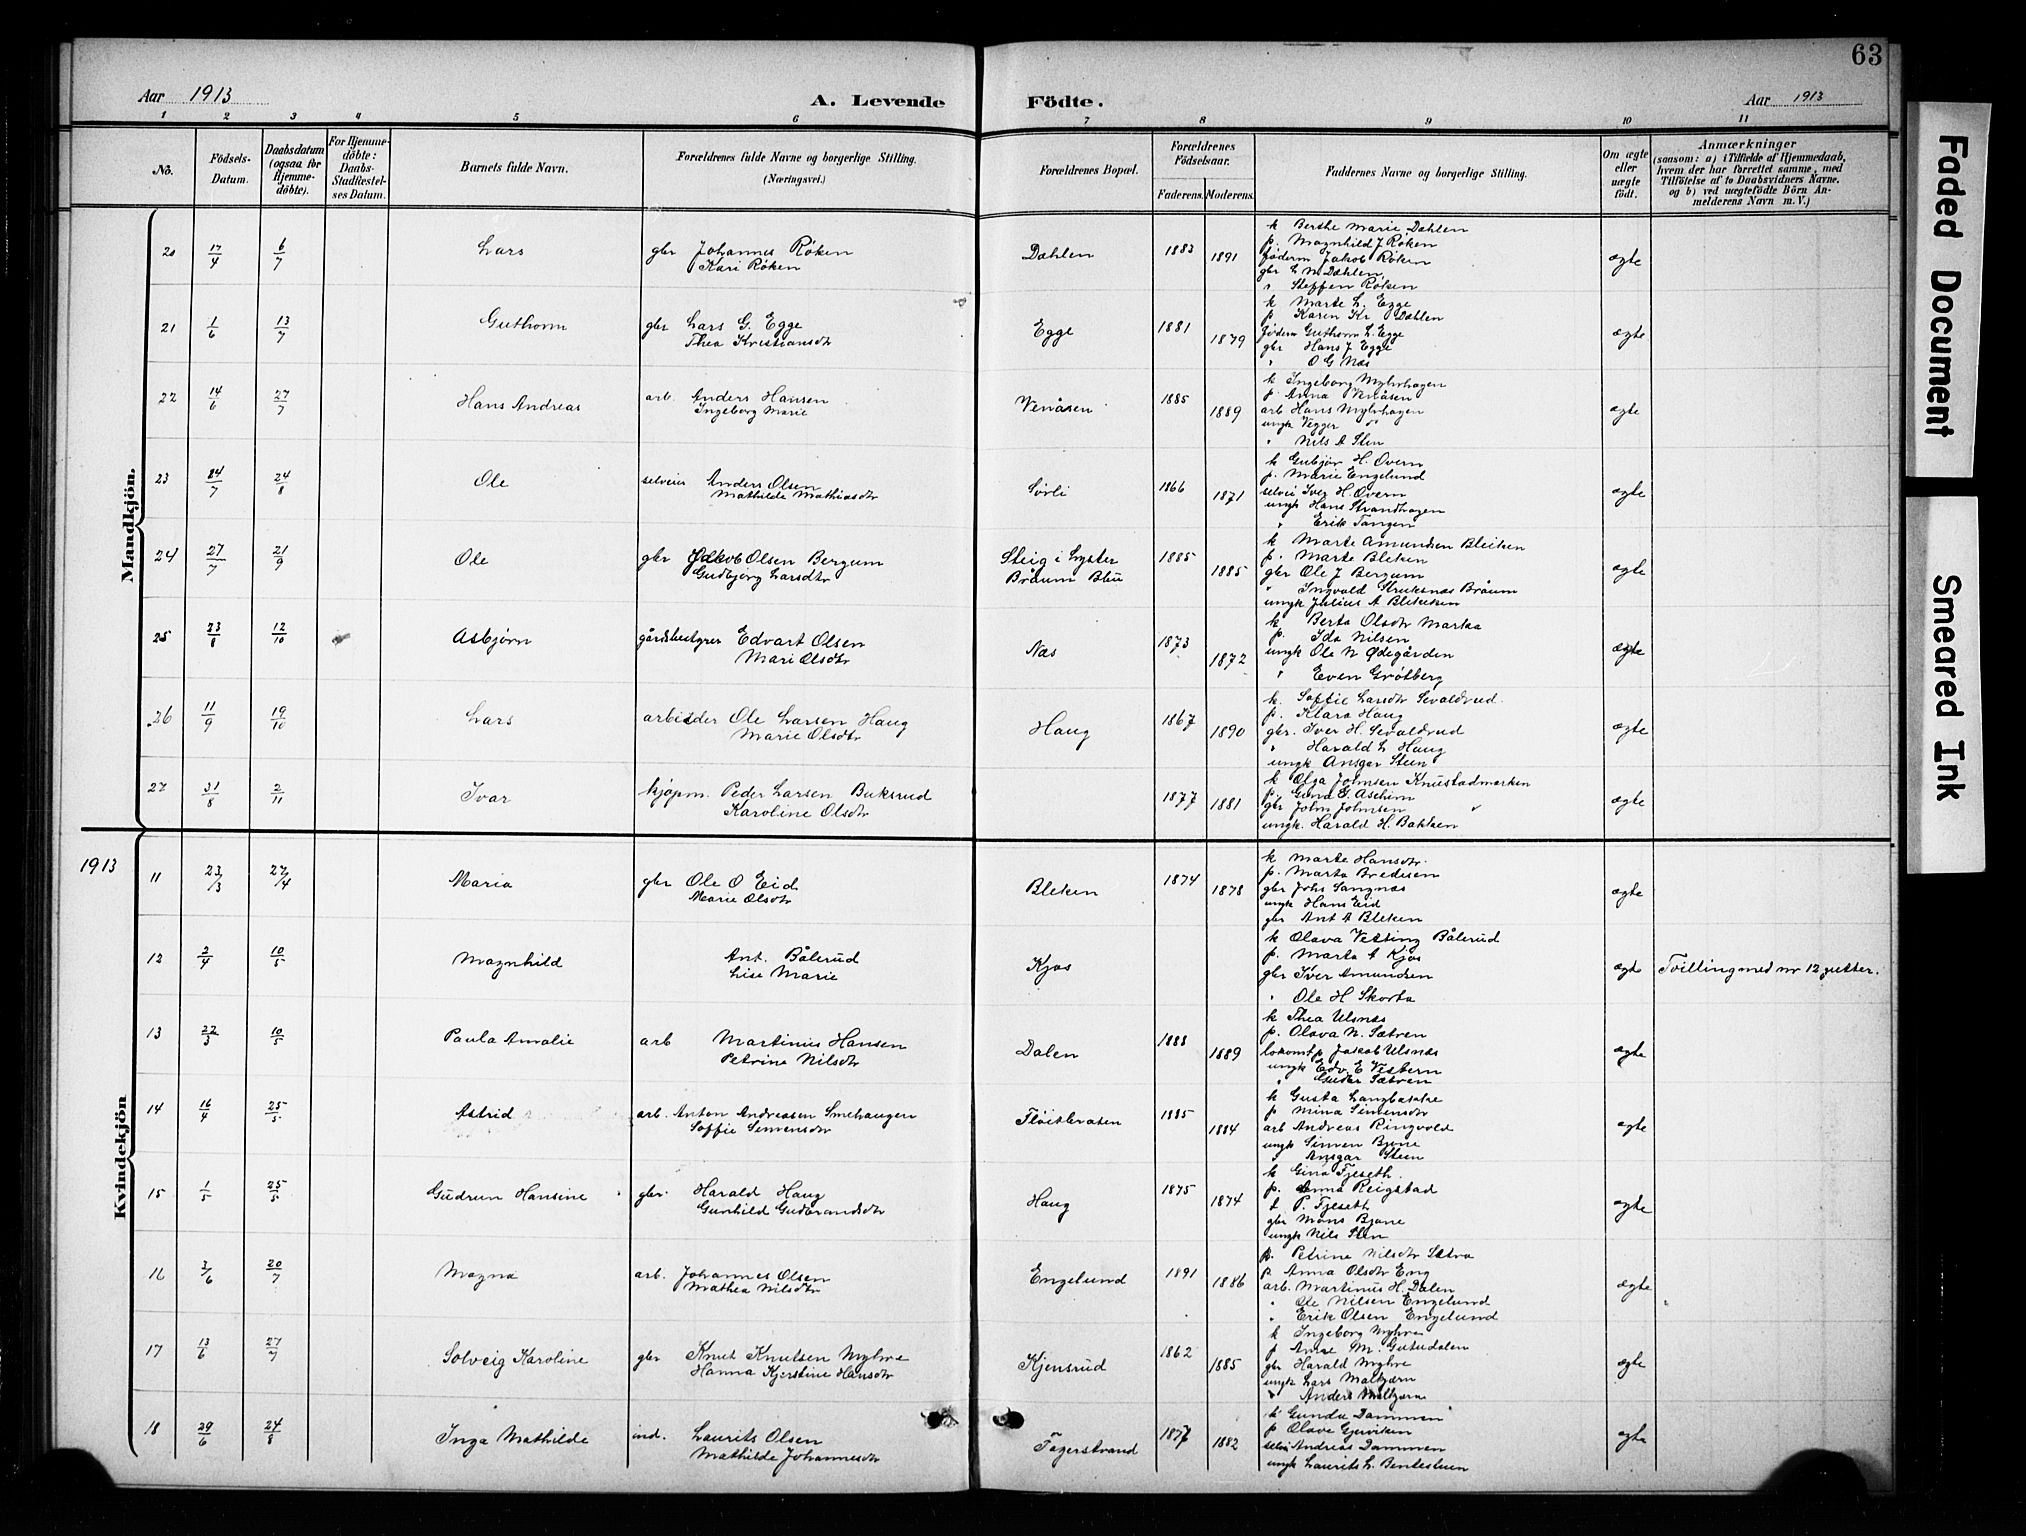 63
Aar 1913
A. Levende
Födte.
Aar 1913
1 2 3 4 5 6 7 8 9 10 11
No.
Födsels-
Datum.
Daabsdatum
(ogsaa for
Hjemme-
döbte).
For Hjemme-
döbte:
Daabs-
Stadfæstel-
ses Datum.
Barnets fulde Navn.
Forældrenes fulde Navne og borgerlige Stilling.
(Næringsvei.)
Forældrenes Bopæl.
Forældrenes
Födselsaar.
Faderens. Moderens.
Faddernes Navne og borgerlige Stilling.
Om ægte
eller
uægte
födt.
Anmærkninger
(saasom: a) i Tilfælde af Hjemmedaab,
hvem der har forrettet samme, med
Tilföielse af to Daabsvidners Navne,
og b) ved uægtefödte Börn An-
melderens Navn m. V.)
Mandkjön.
20 17/4 6/7 Lars gbr Johannes Røken
Kari Røken
Dahlen 1883 1891
k Berthe Marie Dahlen
p. Magnhild J Røken
føderm Jakob Røken
gbr L N Dæhlen
" Steffen Røken
ægte
21 1/6 13/7 Guthorm gbr Lars G. Egge
Thea Kristiansdtr
Egge 1881 1879
k Marte L. Egge
p Karen Kr Dæhlen
føderm Guthorm L. Egge
gbr Hans J Egge
" O G Næs
ægte
22 14/6 27/7 Hans Andreas arb. Anders Hansen
Ingeborg Marie
Venåsen 1885 1889
k Ingeborg Myhrhagen
p Anna Venåsen
arb Hans Myhrhagen
ungk Vegger do
" Nils A Sten
ægte
23 24/7 24/8 Ole selveier Anders Olsen
Mathilde Mathiasdtr
Sørli 1866 1871
k Gubjør H. Overn
p. Marie Engelund
selvei Iver H. Overn
ungk Hans Strandhagen
" Erik Tangen
ægte
24 27/7 21/9 Ole gbr Jakob Olsen Bergum
Gudbjørg Larsdtr
Steig i Lyster
Bråum
1885 1885
k Marte Amundsen Bleiken
p. Marte Bleken
gbr Ole J Bergum
" Ingvald Bråum
ungk Julius A Bleken
ægte
25 23/8 12/10 Asbjørn gårdsbestyrer Edvart Olsen
Mari Olsdtr
Næs 1873 1872
k Berta Olsdtr Marka
p. Ida Nilsen
ungk Ole N Ødegården
" Even Grøtberg
ægte
26 11/9 19/10 Lars arbeider Ole Larsen Haug
Marie Olsdtr
Haug 1867 1890
k. Soffie Larsdtr Sevaldrud.
p. Klara Haug
gbr. Iver H. Sevaldrud
" Harald L Haug
ungk Ansgar Steen
ægte
27 31/8 2/11 Ivar kjøpm. Peder Larsen Buksrud
Karoline Olsdtr
1877 1881
k Olga Johnsen Knustadmarken
p. Gina G. Aschim
gbr John Johnsen "
ungk. Harald H. Bakken
ægte
1913
Kvindekjön
11 23/3 27/4 Maria gbr Ole O Eid
Marie Olsdtr
Bleken 1874 1878
k Marte Hansdtr.
p. Marta Bredesen
gbr Johs Sangnæs
ungk Hans Eid
gbr Ant A Bleken
ægte
12 2/4 10/5 Magnhild Ant. Bålerud
Lise Marie
Kjos
k Olava Vesting Bålerud
p. Marta A Kjos
gbr Iver Amundsen
" Ole H Skorta
ægte Tvilling med nr 12 gutter.
13 22/3 10/5 Paula Amalie arb Martinius Hansen
Petrine Nilsdtr
Dalen 1888 1889
k Thea Ulsnæs
p. Olava N. Sætren
lokomtp Jakob Ulsnæs
ungk Edv. E Vestern
" Guder Sætren
ægte
14 16/4 25/5 Astrid arb. Anton Andreasen Smehaugen
Soffie Simensdtr
Fløitbraten 1885 1884
k Gusta Langbakke
p Mina Simensdtr
arb Andreas Ringvold
ungk Simen Bjone
" Ansgar Steen
ægte
15 1/5 25/5 Gudrun Hansine gbr. Harald Haug
Gunhild Gudbrandsdtr
Haug 1875 1874
k Gina Fjeseth
p. Anna Reigstad
f P. Fjeseth
gbr Mons Bjone
ungk Nils Sten
ægte
16 3/6 20/7 Magna arb. Johannes Olsen
Mathea Nilsdtr
Engelund 1891 1886
p. Petrine Nilsdtr Sætra
p Anna Olsdtr Eng
arb. Martinus H. Dalen
" Ole Nilsen Engelund
" Erik Olsen Engelund
ægte
17 13/6 27/7 Solveig Karoline gbr Knut Knutsen Myhre
Hanna Kjerstine Hansdtr
Kjensrud 1862 1885
k Ingeborg Myhre
p Anne M. Gutudalen
gbr Harald Myhre
ungk Lars Malkjærn
" Anders Malkjærn
ægte
18 29/6 24/8 Inga Mathilde ind. Laurits Olsen
Mathilde Johannesdtr
Fagerstrand 1877 1882
k Gunda Dammen
p Olave Gjøviken
selvei Andreas Dammen
ungk Laurits L. Bentestuen
ægte
Faded Document
Smeared Ink